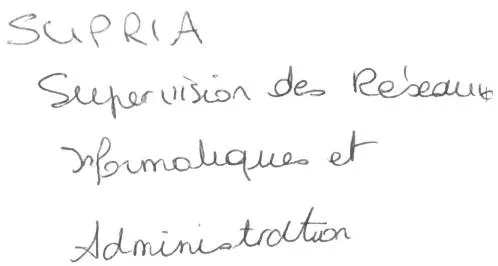 SUPRIA
Supervision des Réseaux
Informatiques et
Administration